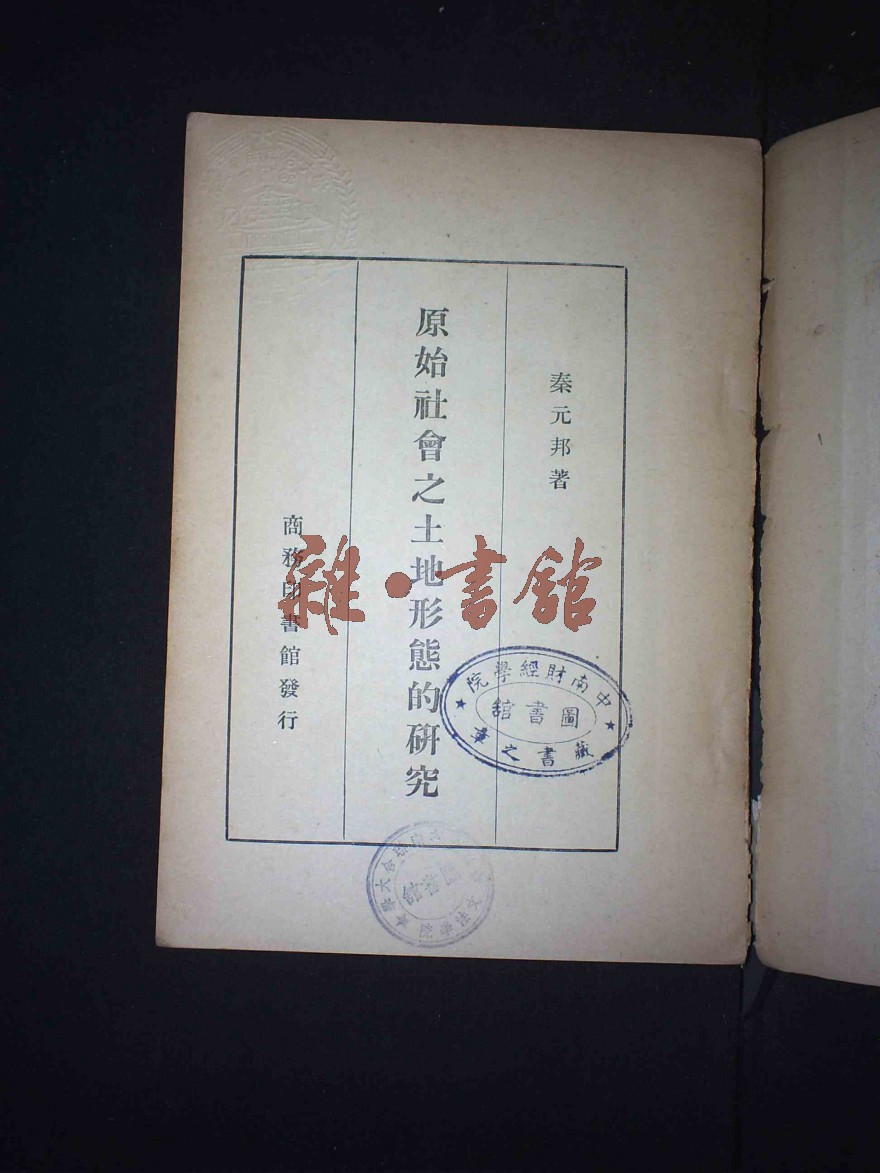 秦元邦著
原始社會之土地形態的研究
商務印書館發行
雜·書館
中南財經學院
圖書館
藏書之章
圖書館